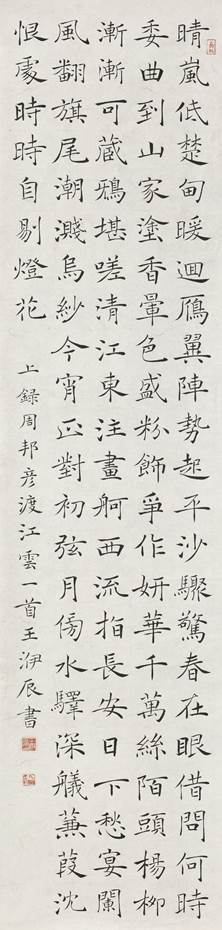 晴嵐低楚甸暖迴鴈翼陣勢起平沙驟驚春在眼借問何時
委曲到山家塗香暈色盛粉飾爭作妍華千萬絲陌頭楊柳
漸漸可藏鴉堪嗟清江東注畫舸西流指長安日下愁宴闌
風翻旗尾潮濺烏紗今宵正對初弦月傍水驛深艤蒹葭沈
恨處時時自剔燈花
上錄周邦彥渡江雲一首王洢辰書